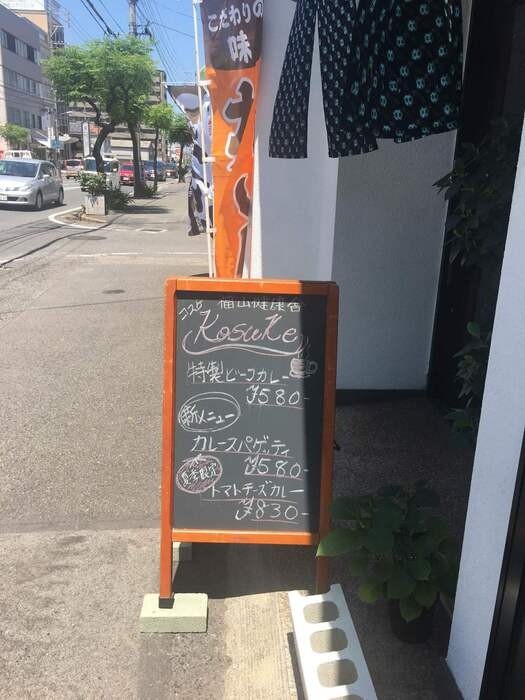 こだわりの
味
ココは 福山健康舎
Kosuke
特製ビーフカレー
¥580-
新メニュー
カレースパゲッティ
¥580-
夏季限定
トマトチーズカレー
¥830-